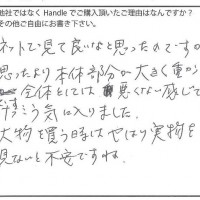 他社ではなく Handle でご購入頂いたご理由はなんですか?
その他ご自由にお書き下さい。
ネットで見て良いなと思ったのですが
思ったより本体部分が大きく重かっ
全体としては悪くない感じで
気に入りました。
大物を買う時はやはり実物を
見ないと不安ですね。